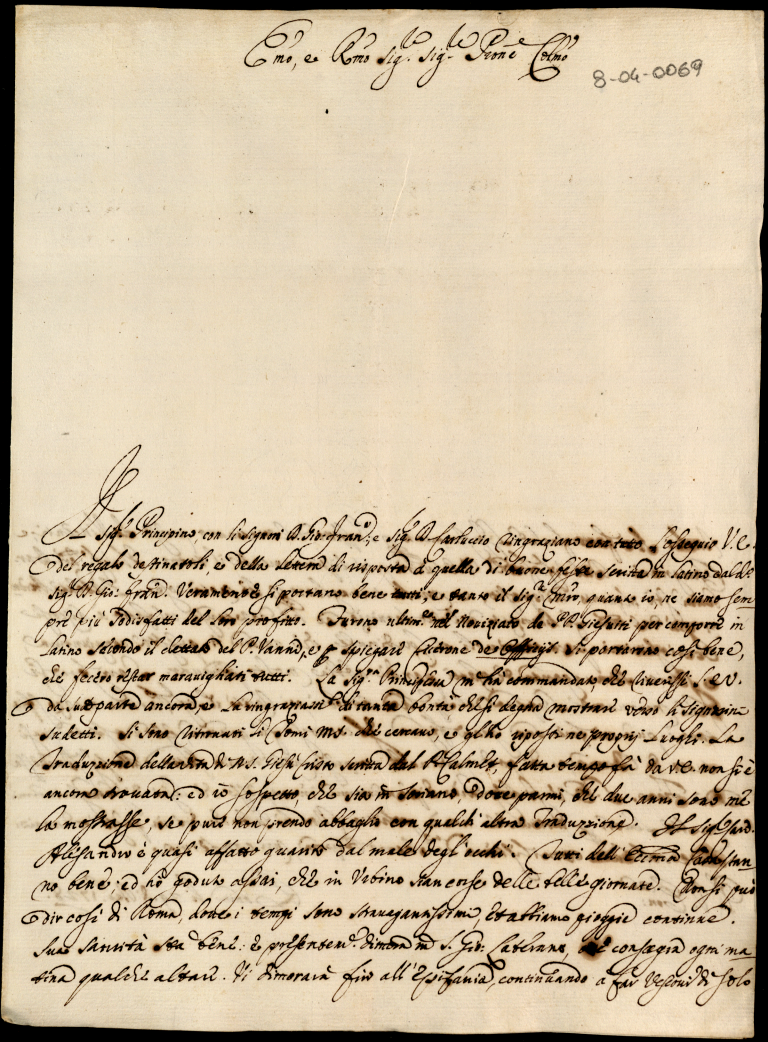 Emo, e Rmo Sigr. Sigr. Prone Colmo
8-04-0069
Il Sigr. Principino, con li Signori D. Gio: Franco, e Sigr. D. Carluccio ringraziano con tutto l'ossequio V. E.
del regalo destinatoli, e della lettera di risposta à quella di buone feste scritta in latino dal do
Sigr. D. Gio: Franco. Veramente si portano bene tutti; e tanto il Sigr. quanto io, ne siamo sem
pre più sodisfatti del loro profitto. Furono ultimte nel Noviziato de PP. Giesuiti per comporre in
latino secondo il dettato del P. Vanni, e p spiegare Cicerone de Officijs. Si portarono così bene,
che fecero restar maravigliati tutti. La Sigra Principessa m'ha commandato, che scrivessi à V.
da sua parte ancora, e la ringraziassi di tanta bontà che si degna mostrare verso li Signorini
sudetti. Si sono ritrovati li Tomi ms. che cercavo, e gl'ho riposti ne proprij luoghi. La
Traduzione della vita di N. S. Giesù Cristo scritta dal P. Calmet, fatta tempo fà da V. E. non si è
ancora trovata: ed io sospetto, che sia in Soriano, dove parmi, che due anni sono me
la mostrasse, se pure non prendo abbaglio con qualche altra Traduzione. Il Sigr. Card.
Alesandro è quasi affatto guarito dal male degl'occhi. Tutti dell' Eccma Casa stan
no bene: ed hò goduto assai, che in Urbino siano corse delle belle giornate. Non si può
dir così di Roma, dove i tempi sono stravagantissimi, ed abbiamo pioggie continue.
Sua Santità sta bene: e presentem. dimora in S. Gio: Laterano, consagra ogni ma
tina qualche altare. Vi dimorarà fin all'Epifania, continuando a far Vescovi di solo